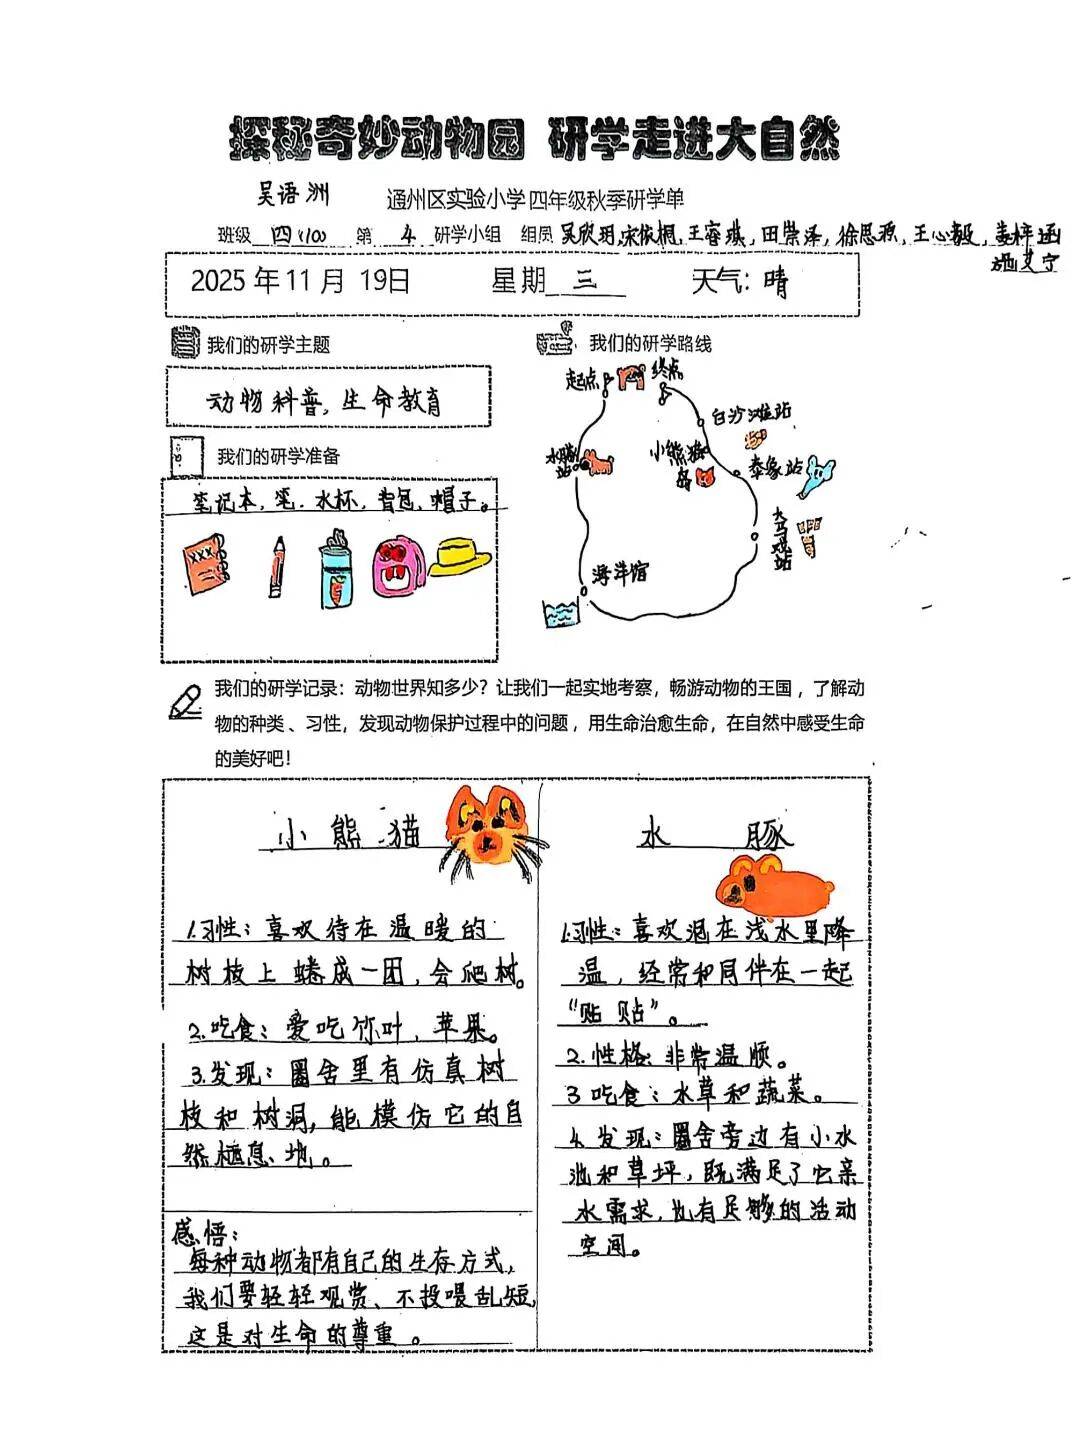 探秘奇妙动物园 研学走进大自然
吴语洲 通州区实验小学四年级秋季研学单
班级 四(10) 第 4 研学小组 组员 吴欣玥,宋依桐,王睿琪,田崇泽,徐思源,王心毅,姜梓涵
施艾宁
2025年11月19日 星期三 天气:晴
我们的研学主题
动物科普,生命教育
我们的研学准备
笔记本,笔.水杯,背包,帽子。
XXX
我们的研学路线
起点
终点
白沙滩站
小熊猫
岛
水豚
站
泰象站
大马戏站
海洋馆
我们的研学记录:动物世界知多少?让我们一起实地考察,畅游动物的王国,了解动
物的种类、习性,发现动物保护过程中的问题,用生命治愈生命,在自然中感受生命
的美好吧!
小熊猫
1.习性:喜欢待在温暖的
树枝上蜷成一团,会爬树。
2.吃食:爱吃竹叶,苹果。
3.发现:圈舍里有仿真树
枝和树洞,能模仿它的自
然栖息地。
感悟:
每种动物都有自己的生存方式,
我们要轻轻观赏、不投喂乱短,
这是对生命的尊重。
水豚
1.习性:喜欢泡在浅水里降
温,经常和同伴在一起
“贴贴”。
2.性格:非常温顺。
3吃食:水草和蔬菜。
4.发现:圈舍旁边有小水
池和草坪,既满足了它亲
水需求,也有足够的活动
空间。